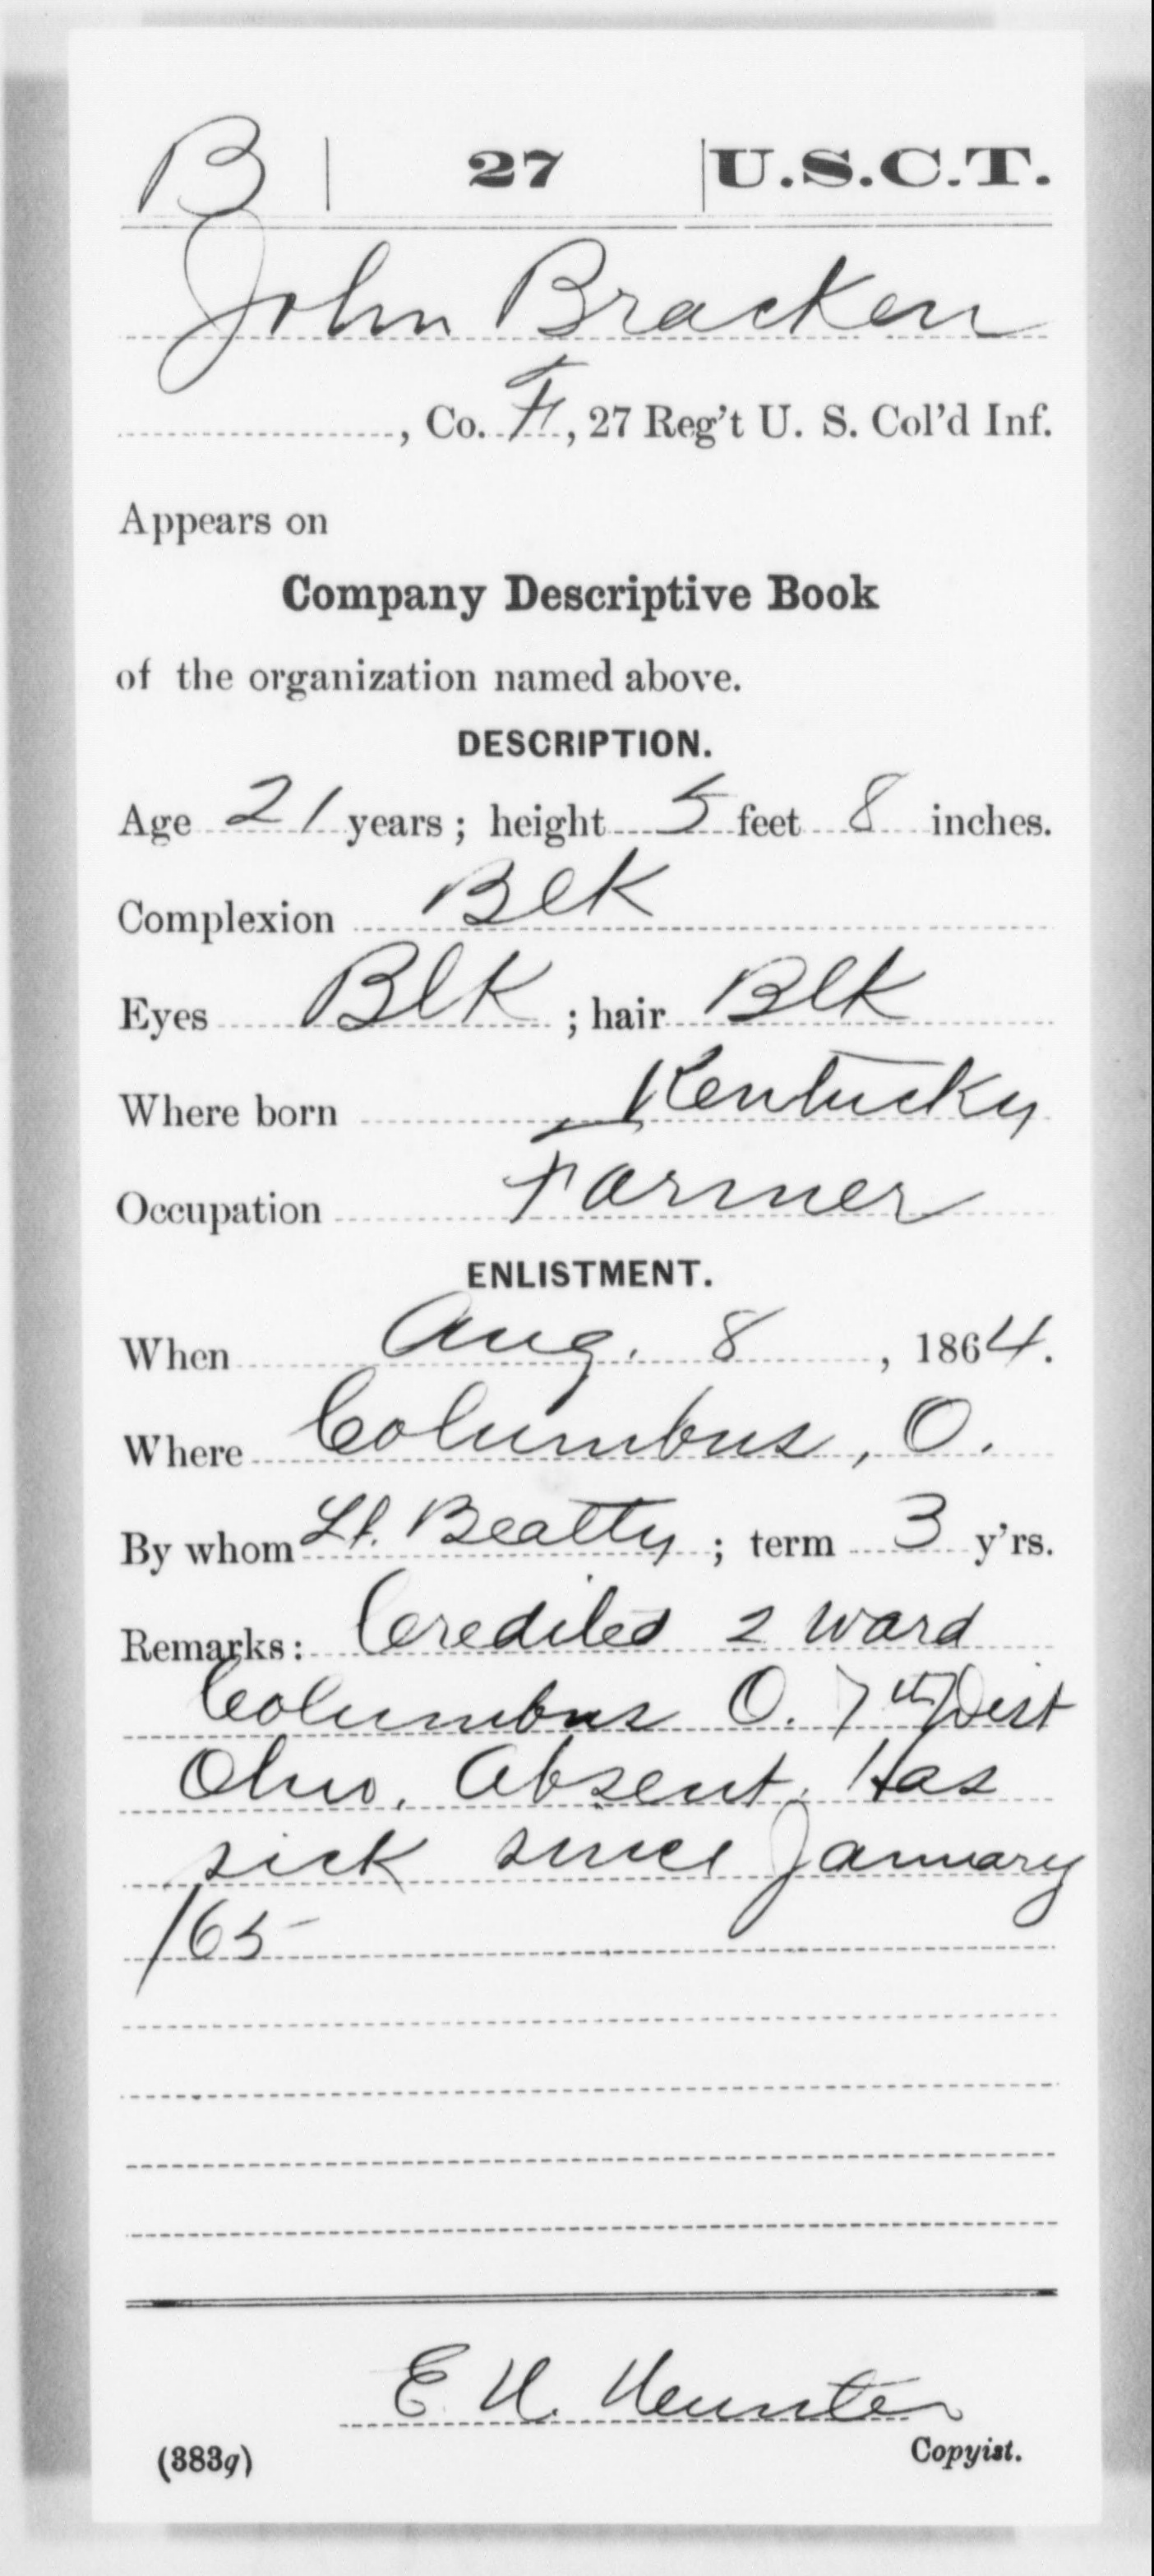 B | 27 | U.S.C.T.
John Bracken
, Co. F, 27 Reg't U. S. Col'd Inf.
Appears on
Company Descriptive Book
of the organization named above.
DESCRIPTION.
Age 21 years; height 5 feet 8 inches.
Complexion Blk
Eyes Blk; hair Blk
Where born Kentucky
Occupation Farmer
ENLISTMENT.
When Aug. 8, 1864.
Where Columbus, O.
By whom Lt. Beatty; term 3 y'rs.
Remarks: Credited 2 Ward
Columbus O. 7th Dist
Ohio. Absent. Has
sick since January
/65
E. H.
(383g) Copyist.